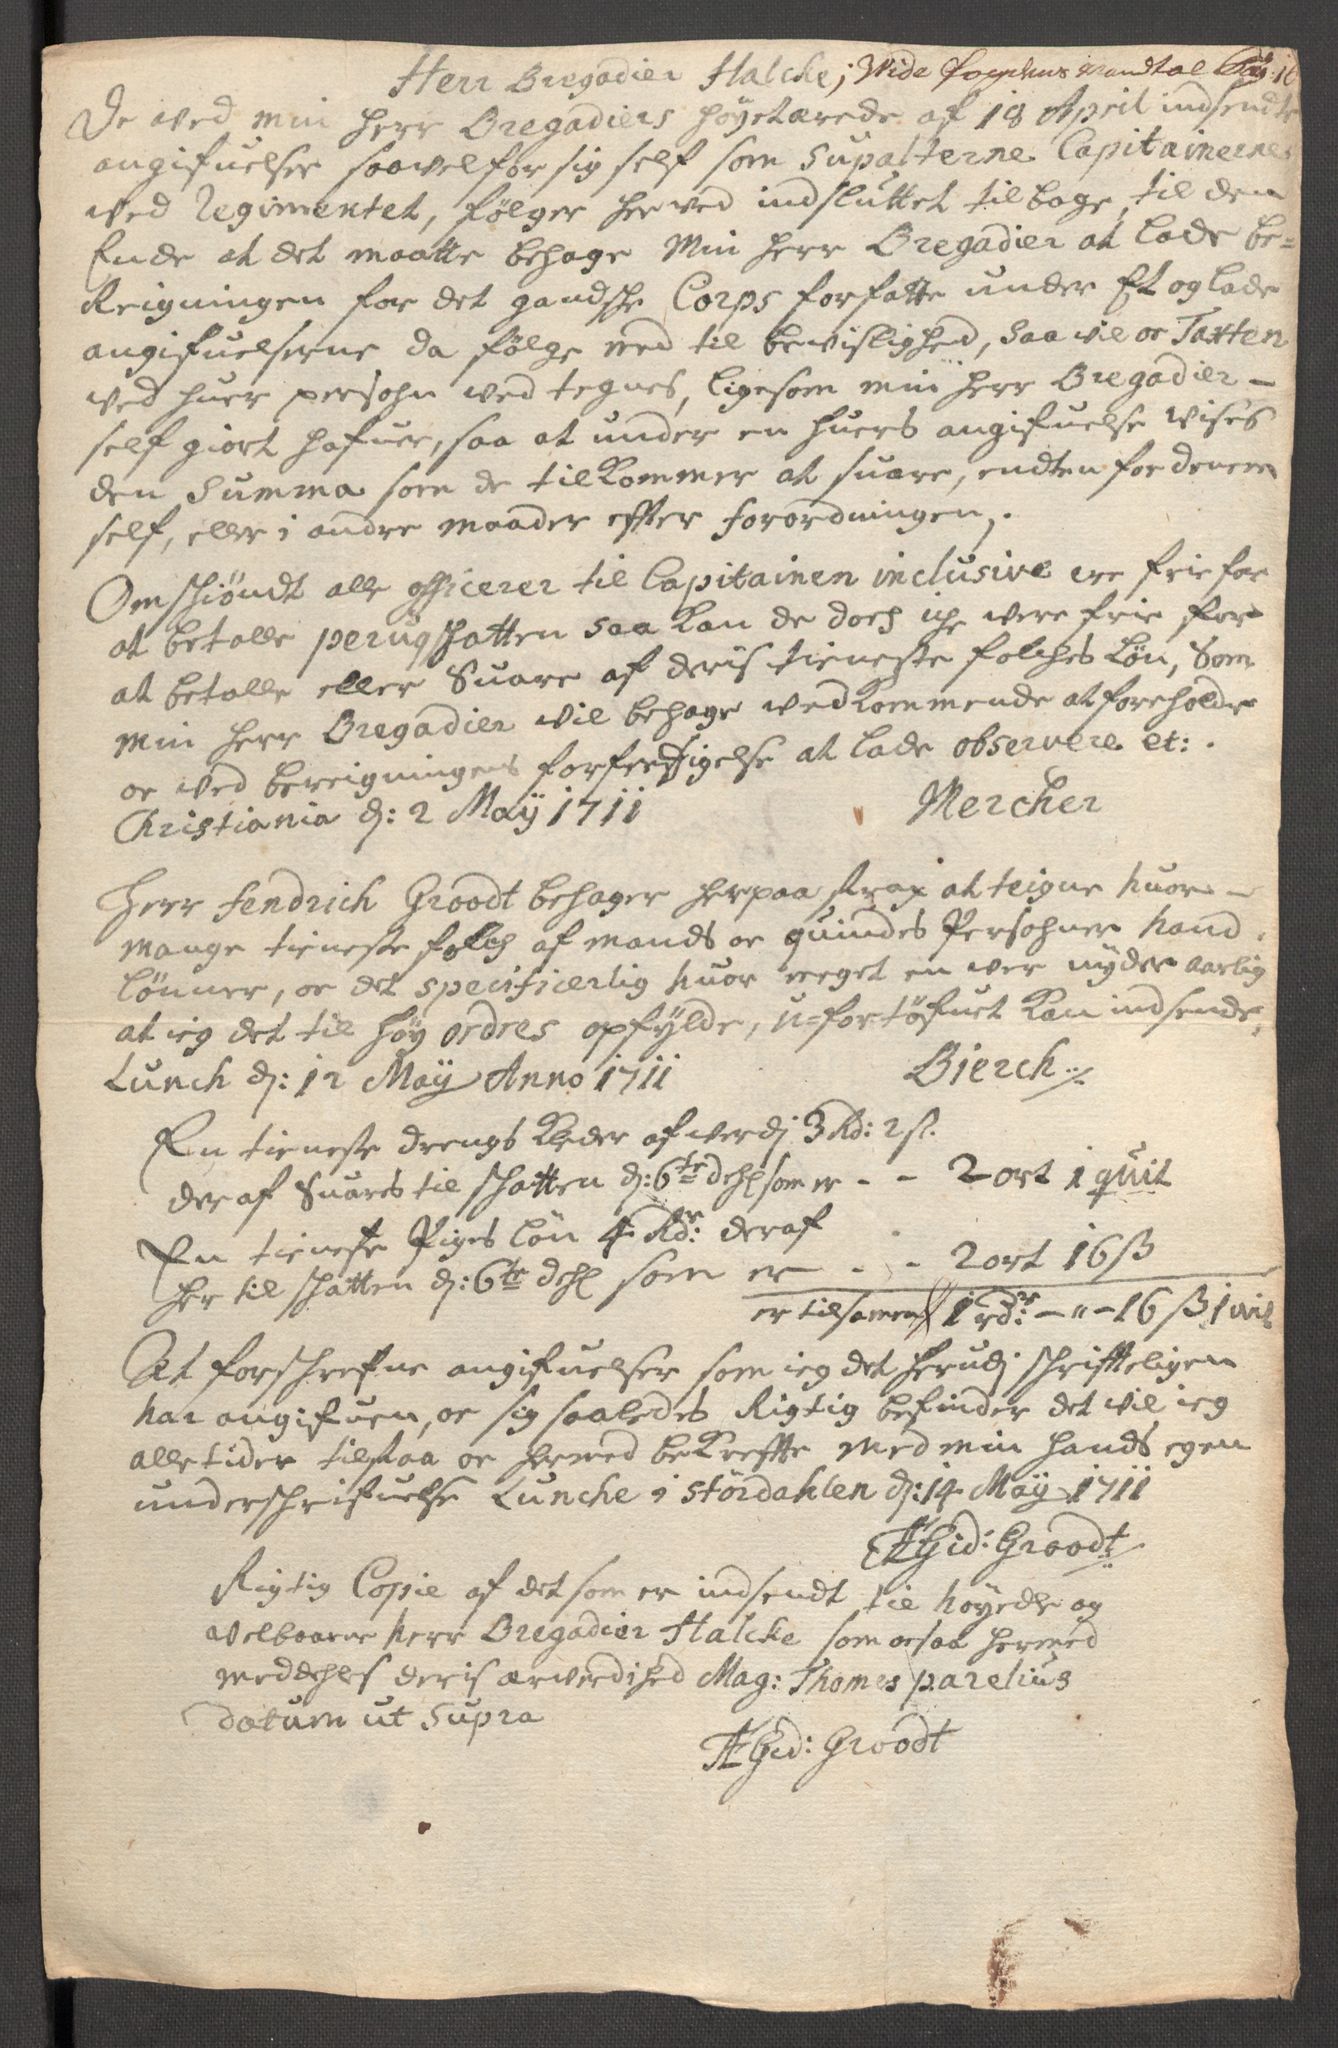 Herr Bregadier Halcke; Wide Fogdens Mandtal
De wed min Herr Bregadiers höystærede af 18 April indsendte
angifuelser saavel for sig self som Supalterne Capitainerne
ved Regimentet, følger herved indsluttet tilbage, til den
Ende at det maatte behage Min Herr Bregadier at lade be=
Reigningen for det gandsche Corps forfatte under Et og lade
angifuelserne da følge med til bevislighed, saa vil oc Taxten
ved huer persohn ved tegnes, ligesom min Herr Bregadier -
self giort hafuer, saa at under en huers angifuelse vises
den Summa som de tilkommer at suare, endten for denem
self, eller i andre maader effter forordningen.
Omschiöndt alle officerer til Capitainen inclusive ere frie for
at betalle perugschatten saa kan de doch iche were frie for
at betalle eller Suare af deris tieneste folches Løn, Som
min Herr Bregadier vil behage wedkommende at foreholde
oc ved bereigningens forferdigelse at lade observere et: .
Christiania d: 2 Maÿ 1711 Mercker
Herr fendrich Groodt behager herpaa strax at teigne huor -
mange tieneste folch af mands oc quindes Persohner hand
lönner, oc det specificerlig huor meget en wer nyder aarlig
at ieg det til høy ordres opfylde, u=fortöfuet kan indsende,
Lunch d: 12 Maÿ Anno 1711 Bierch
En tieneste drengs kleder af werdj 3 Rd: 2 ß.
deraf Suares til schatten d: 6te dehl som er - - 2 ort 1 quit
En tieneste Piges løn 4 Rdr: deraf
her til schatten d: 6te dehl som er - - 2 ort 16 ß
er tilsamen 1 rdr: - " - 16 ß 1 wit
At forschrefne angifuelser som ieg det herudj schrifftligen
har angifuen, oc sig saaledes Rigtig befinder det vil ieg
alle tider tilstaa oc hermed bekreffte med min hands egen
underschrifuelse Lunche i stördahlen d: 14 Maÿ 1711
Ægid: Groodt
Rigtig Copie af det som er indsendt til höyedle og
velbaarne Herr Bregadier Halcke som ocsaa hermed
meddehles deris ærverdihed Mag: Thomes parelius
datum ut Supra
Ægid: Groodt